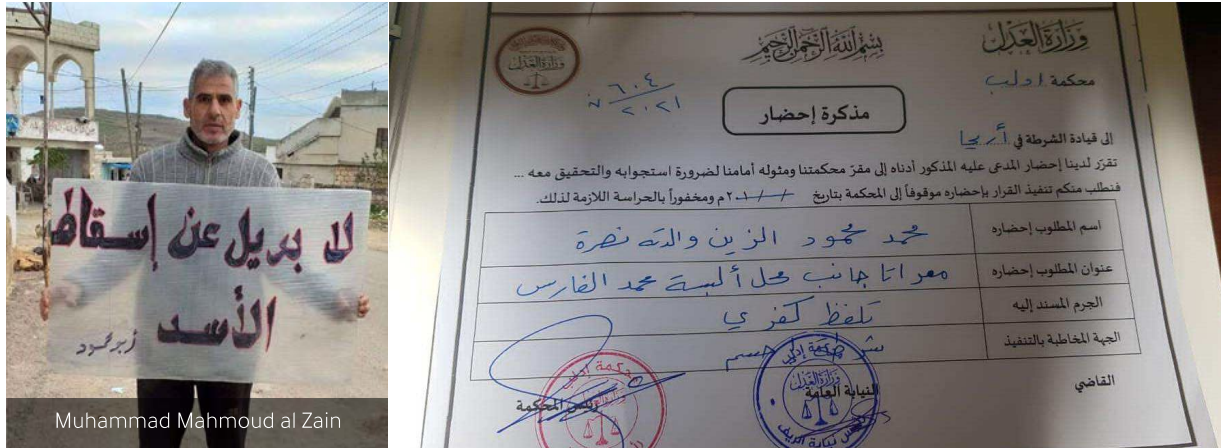 لا بديل عن إسقاط
الأسد
أبو محمود
Muhammad Mahmoud al Zain
وزارة العدل
بسم الله الرحمن الرحيم
وزارة العدل
محكمة ادلب
٦٠٤
٢٠٢١
مذكرة إحضار
إلى قيادة الشرطة في أريحا
تقرّر لدينا إحضار المدعى عليه المذكور أدناه إلى مقرّ محكمتنا ومثوله أمامنا لضرورة استجوابه والتحقيق معه ...
فنطلب منكم تنفيذ القرار بإحضاره موقوفاً إلى المحكمة بتاريخ / / ٢٠١م ومخفوراً بالحراسة اللازمة لذلك.
اسم المطلوب إحضاره محمد محمود الزين والدته نصرة
عنوان المطلوب إحضاره معراتا جانب محل ألبسة محمد الفارس
الجرم المسند إليه تلفظ كفري
الجهة المخاطبة بالتنفيذ
القاضي
النيابة العامة
رئيس المحكمة
محكمة إدلب
وزارة العدل